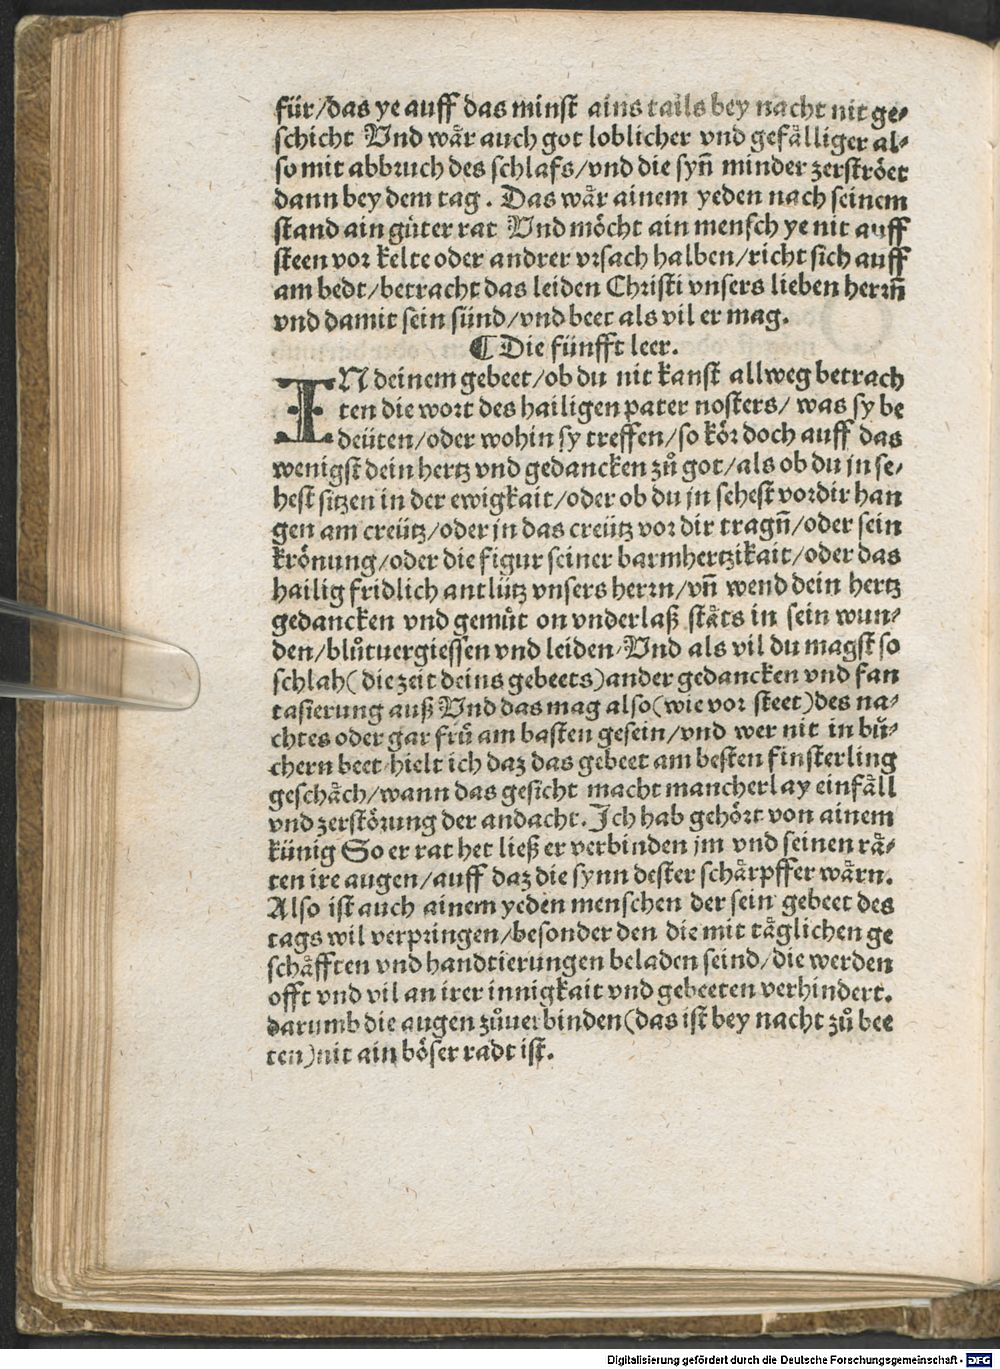 für/das ye auff das minst ains tails bey nacht nit ge⸗
schicht Vnd wår auch got loblicher vnd gefålliger al⸗
so mit abbruch des schlafs/vnd die syn̄ minder zerströet
dann bey dem tag. Das wår ainem yeden nach seinem
stand ain gůter rat Vnd möcht ain mensch ye nit auff
steen vor kelte oder andrer vrsach halben/richt sich auff
am bedt/betracht das leiden Christi vnsers lieben herrn̄
vnd damit sein sünd/vnd beet als vil er mag.
¶ Die fünfft leer.
IN deinem gebeet/ob du nit kanst allweg betrach
ten die wort des hailigen pater nosters/ was sy be
deüten/oder wohin sy treffen/so kör doch auff das
wenigst dein hertz vnd gedancken zů got/als ob du jn se⸗
hest sitzen in der ewigkait/oder ob du jn sehest vor dir han
gen am creütz/oder jn das creütz vor dir tragn̄/oder sein
krönung/oder die figur seiner barmhertzikait/oder das
hailig fridlich antlütz vnsers herrn/vn̄ wend dein hertz
gedancken vnd gemůt on vnderlaß ståts in sein wun⸗
den/blůtuergiessen vnd leiden/Vnd als vil du magst so
schlah(die zeit deins gebeets)ander gedancken vnd fan
tasierung auß Vnd das mag also(wie vor steet)des na⸗
chtes oder gar frů am basten gesein/vnd wer nit in bů⸗
chern beet hielt ich daz das gebeet am besten finsterling
geschåch/wann das gesicht macht mancherlay einfåll
vnd zerstörung der andacht. Ich hab gehört von ainem
künig So er rat het ließ er verbinden jm vnd seinen rå⸗
ten ire augen/auff daz die synn dester schårpffer wårn.
Also ist auch ainem yeden menschen der sein gebeet des
tags wil verpringen/besonder den die mit tåglichen ge
schåfften vnd handtierungen beladen seind/die werden
offt vnd vil an irer innigkait vnd gebeeten verhindert.
darumb die augen zůuerbinden(das ist bey nacht zů bee
ten)nit ain böser radt ist.
Digitalisierung gefördert durch die Deutsche Forschungsgemeinschaft - DFG